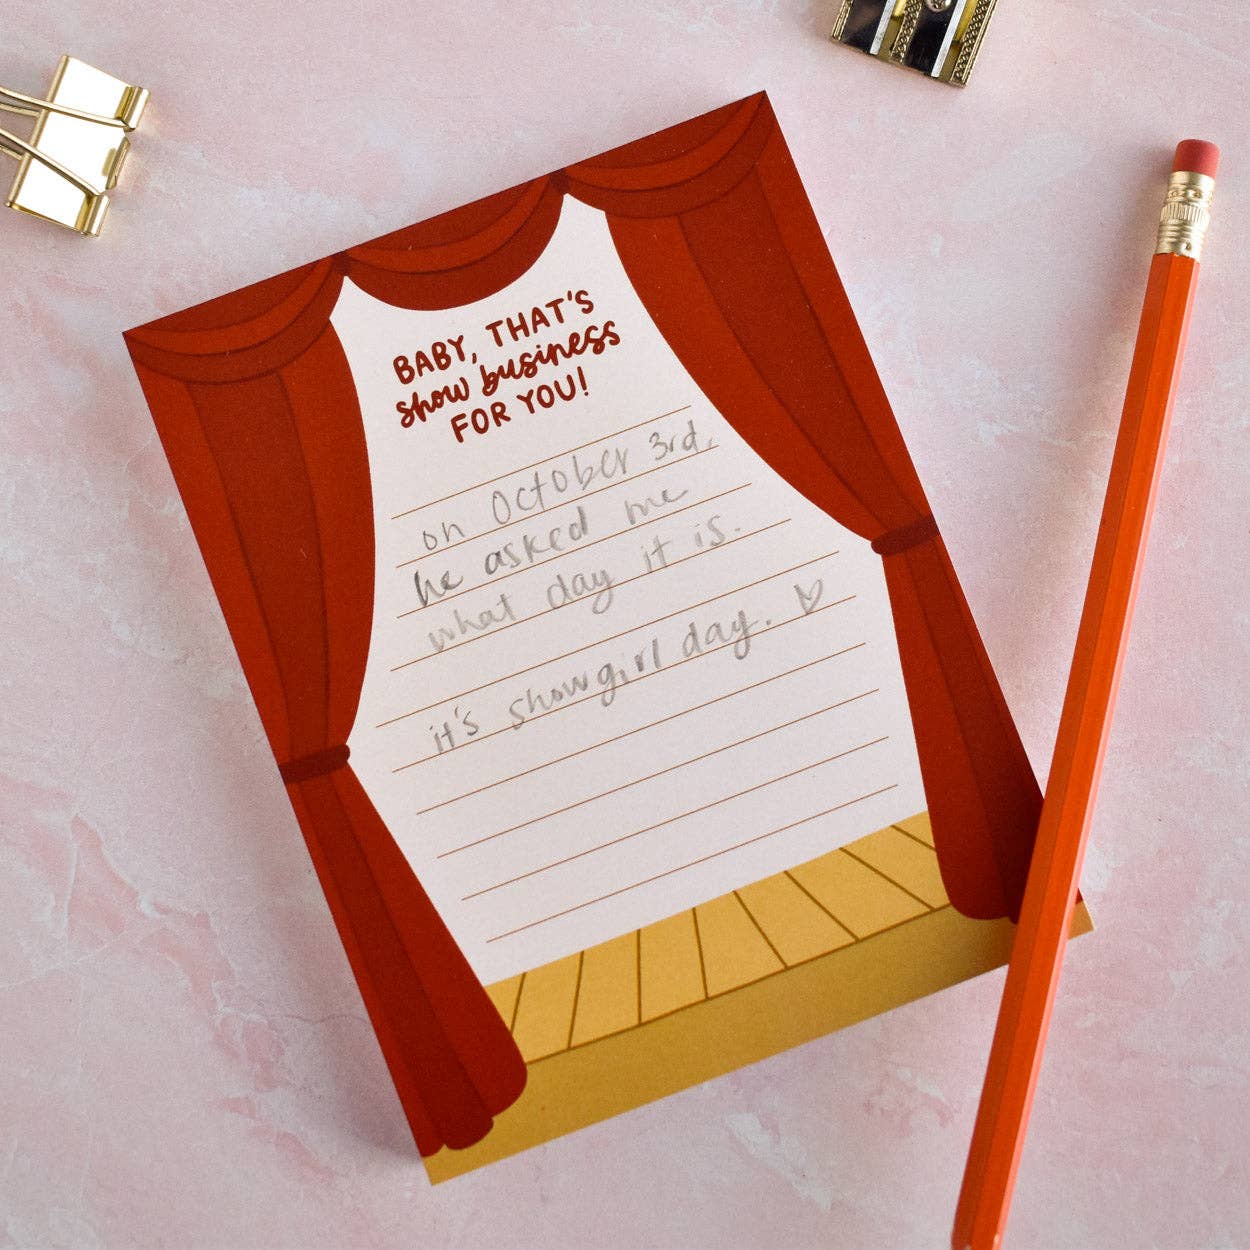 BABY, THAT'S
show business
FOR YOU!
on October 3rd,
he asked me
what day it is.
it's showgirl day. ♡